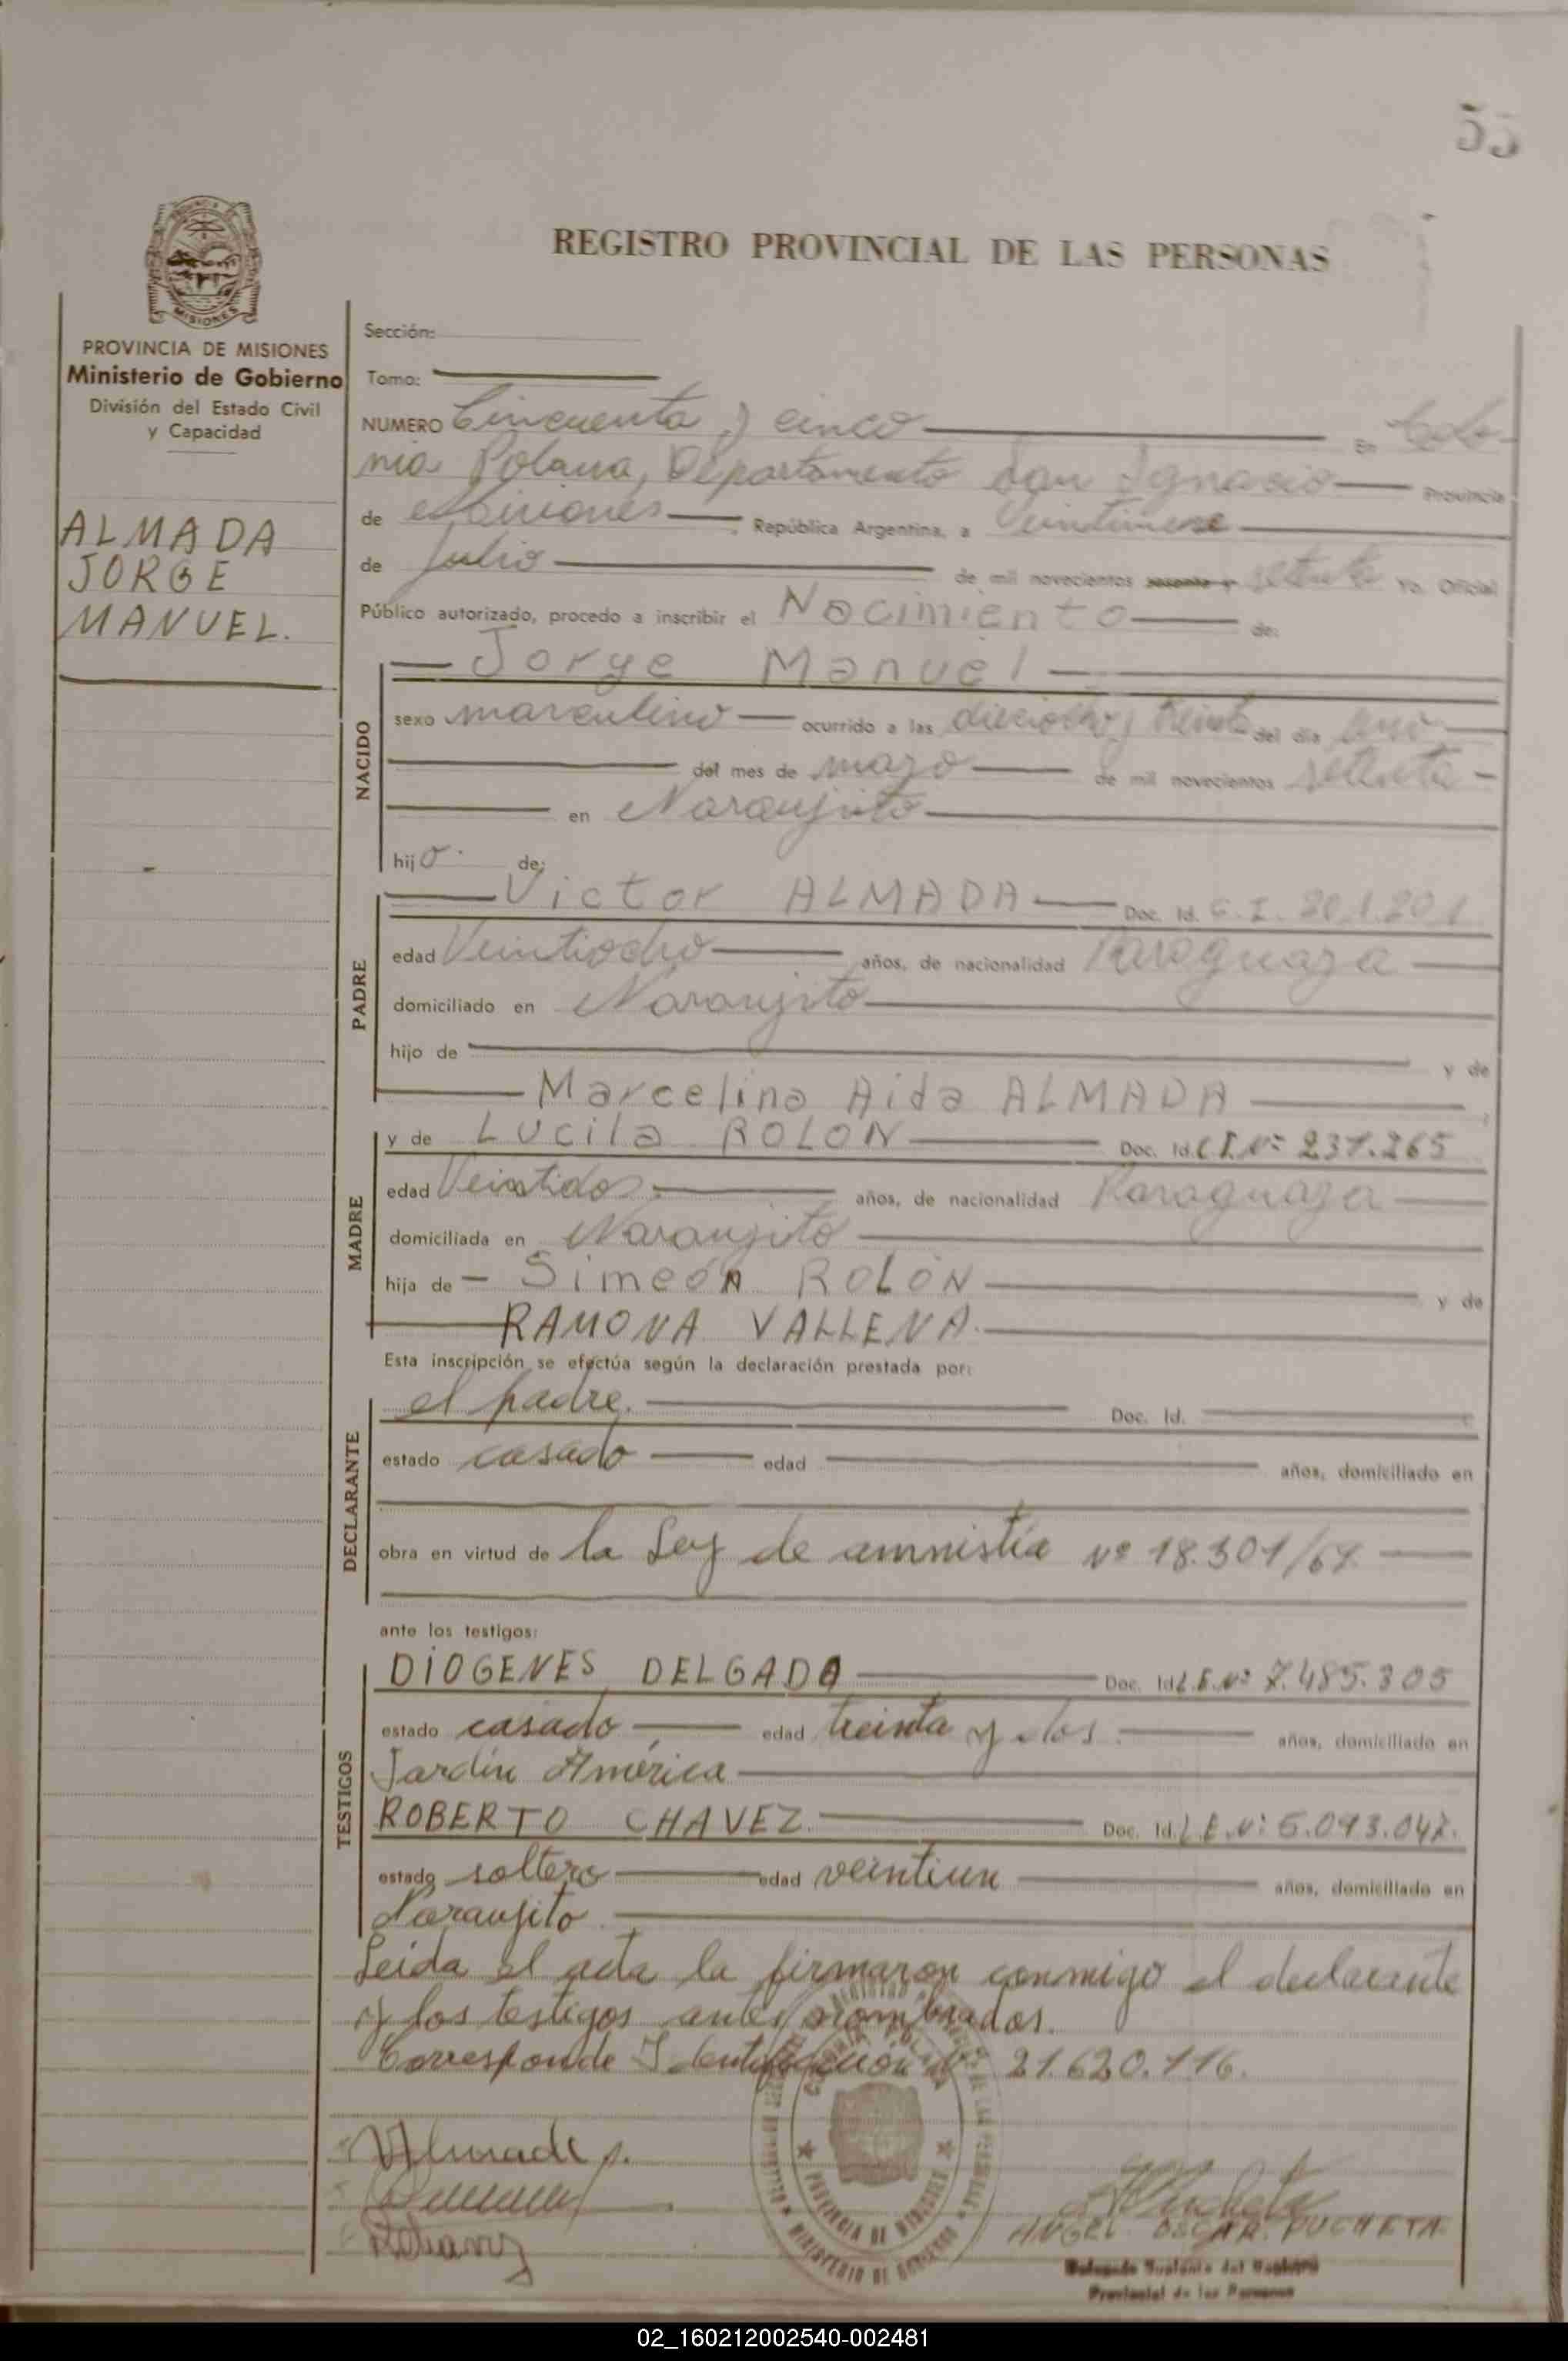 55
REGISTRO PROVINCIAL DE LAS PERSONAS
MISIONES
PROVINCIA DE MISIONES
Ministerio de Gobierno
División del Estado Civil
y Capacidad
ALMADA
JORGE
MANUEL.
Sección:
Tomo:
NUMERO Cincuenta y cinco En Colo-
nia Polana, Departamento San Ignacio Provincia
de Misiones República Argentina, a Veintinueve
de Julio de mil novecientos sesenta y setenta Yo, Oficial
Público autorizado, procedo a inscribir el Nacimiento de:
NACIDO
Jorge Manuel
sexo masculino ocurrido a las dieciocho y treinta del día uno
del mes de de mil novecientos setenta
en Naranjito
hijo de:
PADRE
Victor ALMADA Doc. Id. C.I.
edad Veintiocho años, de nacionalidad Paraguaya
domiciliado en Naranjito
hijo de y de
Marcelina Aida ALMADA
MADRE
y de Lucila ROLON Doc. Id. C.I. Nº 231.265
edad Veintidos. años, de nacionalidad Paraguaya
domiciliada en Naranjito
hija de Simeón ROLÓN y de
RAMONA VALLENA.
Esta inscripción se efectúa según la declaración prestada por:
DECLARANTE
el padre. Doc. Id.
estado casado edad años, domiciliado en
obra en virtud de la Ley de amnistía Nº 18.301/69
ante los testigos:
TESTIGOS
DIOGENES DELGADO Doc. Id. L.E. Nº 7.485.305
estado casado edad treinta y dos. años, domiciliado en
Jardín América
ROBERTO CHAVEZ. Doc. Id. L.E. Nº
estado soltero edad veintiun años, domiciliado en
Naranjito
Leida el acta la firmaron conmigo el declarante
y los testigos antes nombrados.
Corresponde Identificación Nº 21.620.116.
PROVINCIA DE MISIONES
MINISTERIO DE GOBIERNO
ANGEL OSCAR PUCHETA
Delegado Suplente del Registro
Provincial de las Personas
02_160212002540-002481